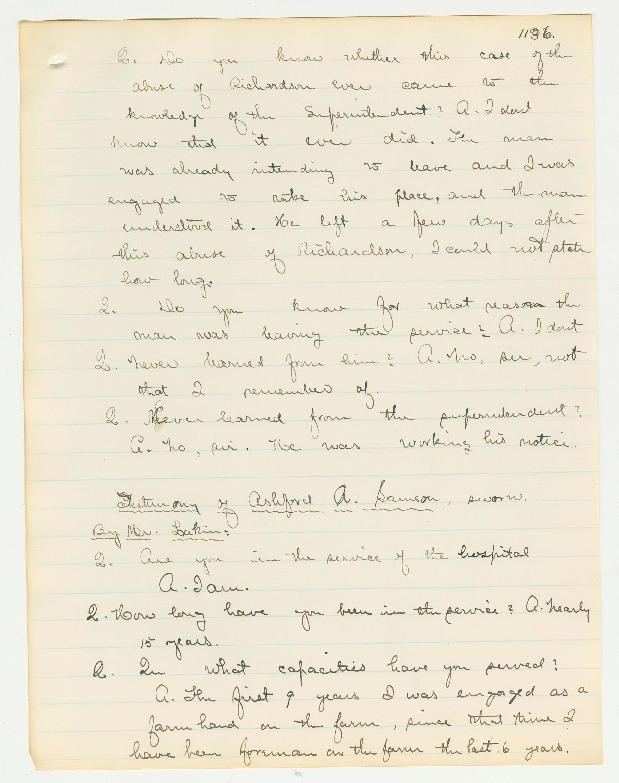 1136.
Q. Do you know whether this case of the
abuse of Richardson ever came to the
knowledge of the Superintendent? A. I dont
know that it ever did. The man
was already intending to leave and I was
engaged to take his place, and the man
understood it. He left a few days after
this abuse of Richardson, I could not state
how long.
Q. Do you know for what reason the
man was leaving the service? A. I dont
Q. Never learned from him? A. No, sir, not
that I remember of.
Q. Never learned from the superintendent?
A. No, sir. He was working his notice.
Testimony of Ashford A. Samson, sworn.
By Mr. Lakin:
Q. Are you in the service of the hospital
A. I am.
Q. How long have you been in the service? A. Nearly
15 years.
Q. In what capacities have you served?
A. The first 9 years I was engaged as a
farm hand on the farm, since that time I
have been foreman on the farm the last 6 years.